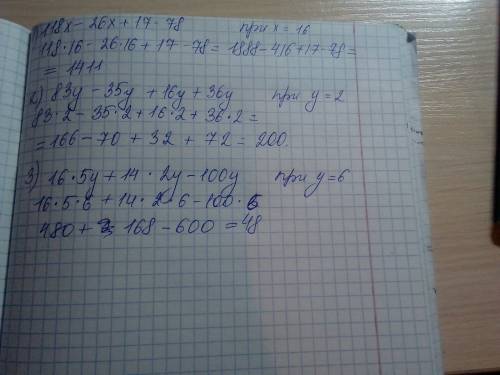 118x - 26x + 17 - 78 при x = 16
118·16 - 26·16 + 17 - 78 = 1888 - 416 + 17 - 78 =
= 1411
2) 83y - 35y + 16y + 36y при y = 2
83·2 - 35·2 + 16·2 + 36·2 =
= 166 - 70 + 32 + 72 = 200.
3) 16·5y + 14·2y - 100y при y = 6
16·5·6 + 14·2·6 - 100·6
480 + 168 - 600 = 48